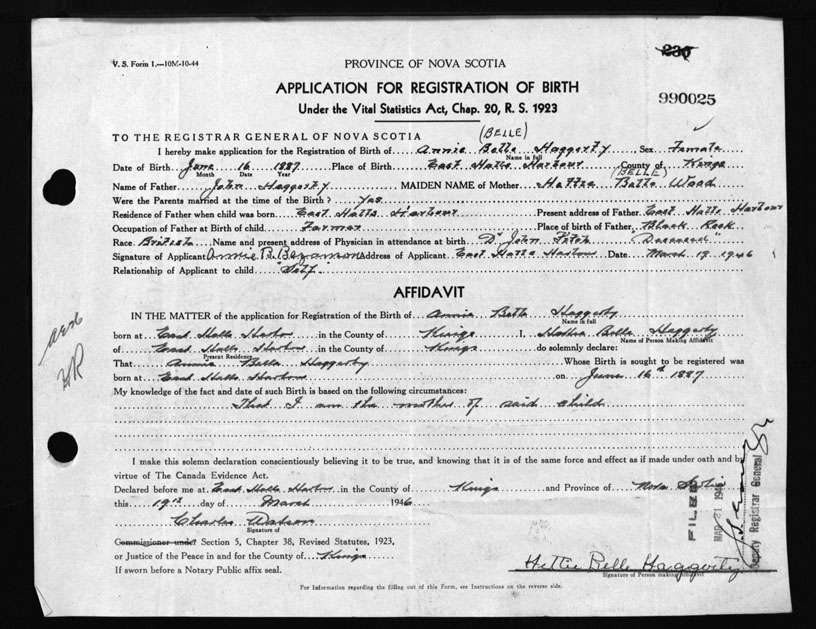 V. S. Form 1.—10M-10-44
PROVINCE OF NOVA SCOTIA
230
APPLICATION FOR REGISTRATION OF BIRTH
990025
Under the Vital Statistics Act, Chap. 20, R. S. 1923
TO THE REGISTRAR GENERAL OF NOVA SCOTIA (BELLE)
I hereby make application for the Registration of Birth of Annie Belle Haggerty Sex Female
Name in full
Date of Birth June 16 1887 Place of Birth East Halls Harbour County of Kings
Month Date Year
(BELLE)
Name of Father John Haggerty MAIDEN NAME of Mother Hettie Belle Wood
Were the Parents married at the time of the Birth? Yes
Residence of Father when child was born East Halls Harbour Present address of Father East Halls Harbour
Occupation of Father at Birth of child Farmer Place of birth of Father Black Rock
Race British Name and present address of Physician in attendance at birth Dr John "Deceased"
Signature of Applicant Annie B. Address of Applicant East Halls Harbour Date March 19 1946
Relationship of Applicant to child "Self"
AFFIDAVIT
IN THE MATTER of the application for Registration of Birth of Annie Belle Haggerty
Name in full
born at East Halls Harbour in the County of Kings I, Hettie Belle Haggerty
Name of Person Making Affidavit
of East Halls Harbour in the County of Kings do solemnly declare:
Present Residence
That Annie Belle Haggerty Whose Birth is sought to be registered was
born at East Halls Harbour on June 16th 1887
My knowledge of the fact and date of such Birth is based on the following circumstances:
That I am the mother of said child
I make this solemn declaration conscientiously believing it to be true, and knowing that it is of the same force and effect as if made under oath and by
virtue of The Canada Evidence Act.
Declared before me at East Halls Harbour in the County of Kings and Province of Nova Scotia
this 19th day of March 1946
Charles
Signature of
Commissioner under Section 5, Chapter 38, Revised Statutes, 1923,
or Justice of the Peace in and for the County of Kings
If sworn before a Notary Public affix seal.
Hettie Belle Haggerty
Signature of Person making Affidavit
For Information regarding the filling out of this Form, see Instructions on the reverse side.
FILED
MAR 21 1946
Deputy Registrar General